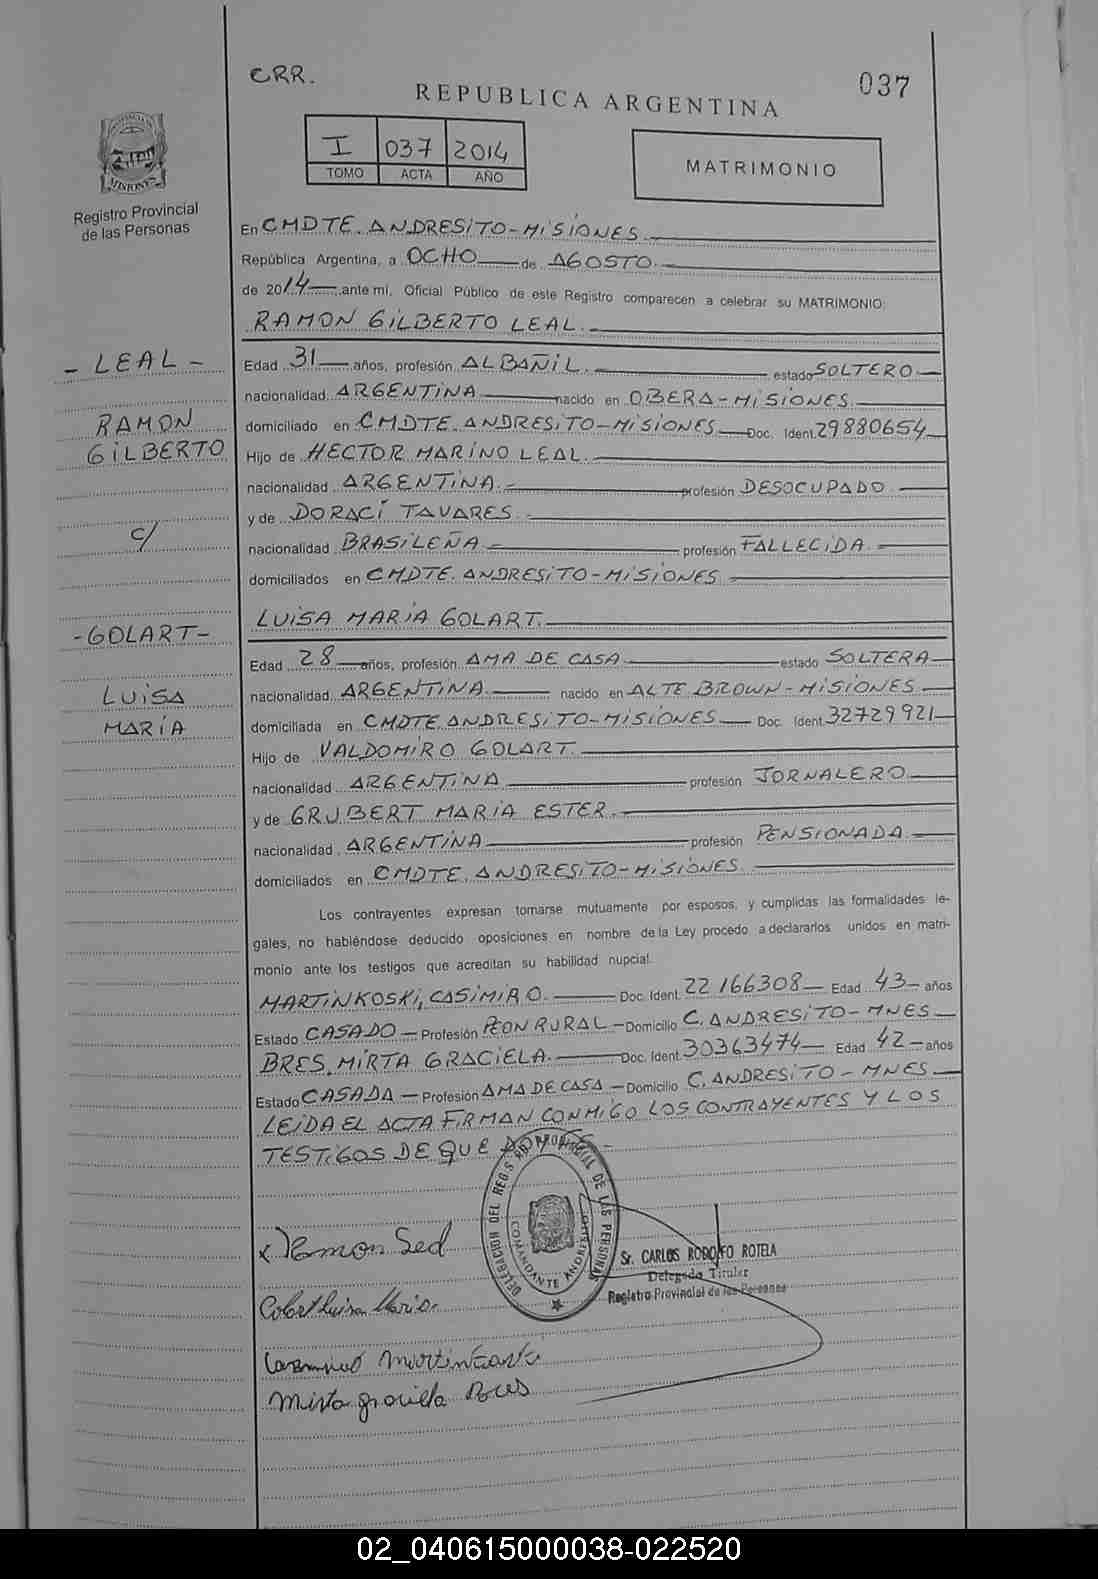 CRR.
037
REPUBLICA ARGENTINA
I 037 2014
TOMO ACTA AÑO
MATRIMONIO
MISIONES
Registro Provincial
de las Personas
En CMDTE. ANDRESITO-MISIONES.
República Argentina, a OCHO de AGOSTO.
de 2014 ,ante mí, Oficial Público de este Registro comparecen a celebrar su MATRIMONIO:
RAMON GILBERTO LEAL.
- LEAL -
RAMON
GILBERTO
c/
-GOLART-
LUISA
MARÍA
Edad 31 años, profesión ALBAÑIL. estado SOLTERO
nacionalidad ARGENTINA nacido en OBERA-MISIONES.
domiciliado en CMDTE. ANDRESITO-MISIONES Doc. Ident. 29880654
Hijo de HECTOR MARINO LEAL.
nacionalidad ARGENTINA. profesión DESOCUPADO.
y de DORACÍ TAVARES.
nacionalidad BRASILEÑA profesión FALLECIDA.
domiciliados en CMDTE. ANDRESITO-MISIONES.
LUISA MARÍA GOLART.
Edad 28 años, profesión AMA DE CASA estado SOLTERA
nacionalidad ARGENTINA. nacido en ALTE BROWN-MISIONES
domiciliada en CMDTE. ANDRESITO-MISIONES Doc. Ident. 32729921
Hijo de VALDOMIRO GOLART.
nacionalidad ARGENTINA profesión JORNALERO
y de GRUBERT MARÍA ESTER.
nacionalidad ARGENTINA profesión PENSIONADA.
domiciliados en CMDTE. ANDRESITO-MISIONES.
Los contrayentes expresan tomarse mutuamente por esposos, y cumplidas las formalidades le-
gales, no habiéndose deducido oposiciones en nombre de la Ley procedo a declararlos unidos en matri-
monio ante los testigos que acreditan su habilidad nupcial.
MARTINKOSKI, CASIMIRO. Doc. Ident. 22166308 Edad 43 años
Estado CASADO Profesión PEON RURAL Domicilio C. ANDRESITO-MNES
BRES, MIRTA GRACIELA. Doc. Ident. 30363474 Edad 42 años
Estado CASADA Profesión AMA DE CASA Domicilio C. ANDRESITO-MNES
LEIDA EL ACTA FIRMAN CONMIGO LOS CONTRAYENTES Y LOS
TESTIGOS DE QUE DOY FE.-
DELEGACION DEL REGISTRO PROVINCIAL DE LAS PERSONAS
COMANDANTE ANDRESITO
Sr. CARLOS RODOLFO ROTELA
Delegado Titular
Registro Provincial de las Personas
Golart Luisa Maria
Mirta graciela Bres
02_040615000038-022520